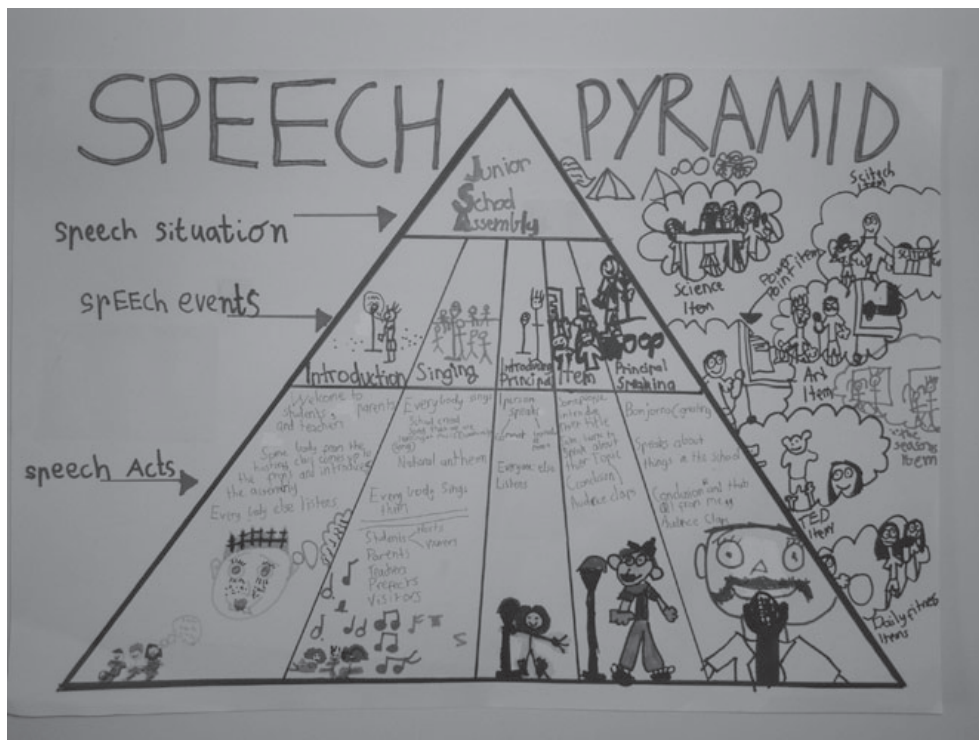 SPEECH PYRAMID
Junior
School
Assembly
speech situation
spEEch events
speech Acts
Introduction
Singing
Introducing
Principal
Item
Principal
Speaking
Welcome to
students, parents
and teachers
Some body from the
hosting class comes up to
the front and introduces
the assembly
Every body else listens
Everybody sings
School creed
(song)
National anthem
Every body sings
them
Students
Parents
Teachers
Prefects
Visitors
1 person
speaks
Everyone else
Listens
Someone
their title
Speak about
their Topic
Audience claps
Bonjorno (greeting)
Speaks about
things in the school
Conclusion and thats
all from me
Audience Claps
Science
Item
Scitech
Item
Power
Point item
Art
Item
the
seasons
Item
TED
Item
Daily fitness
Items